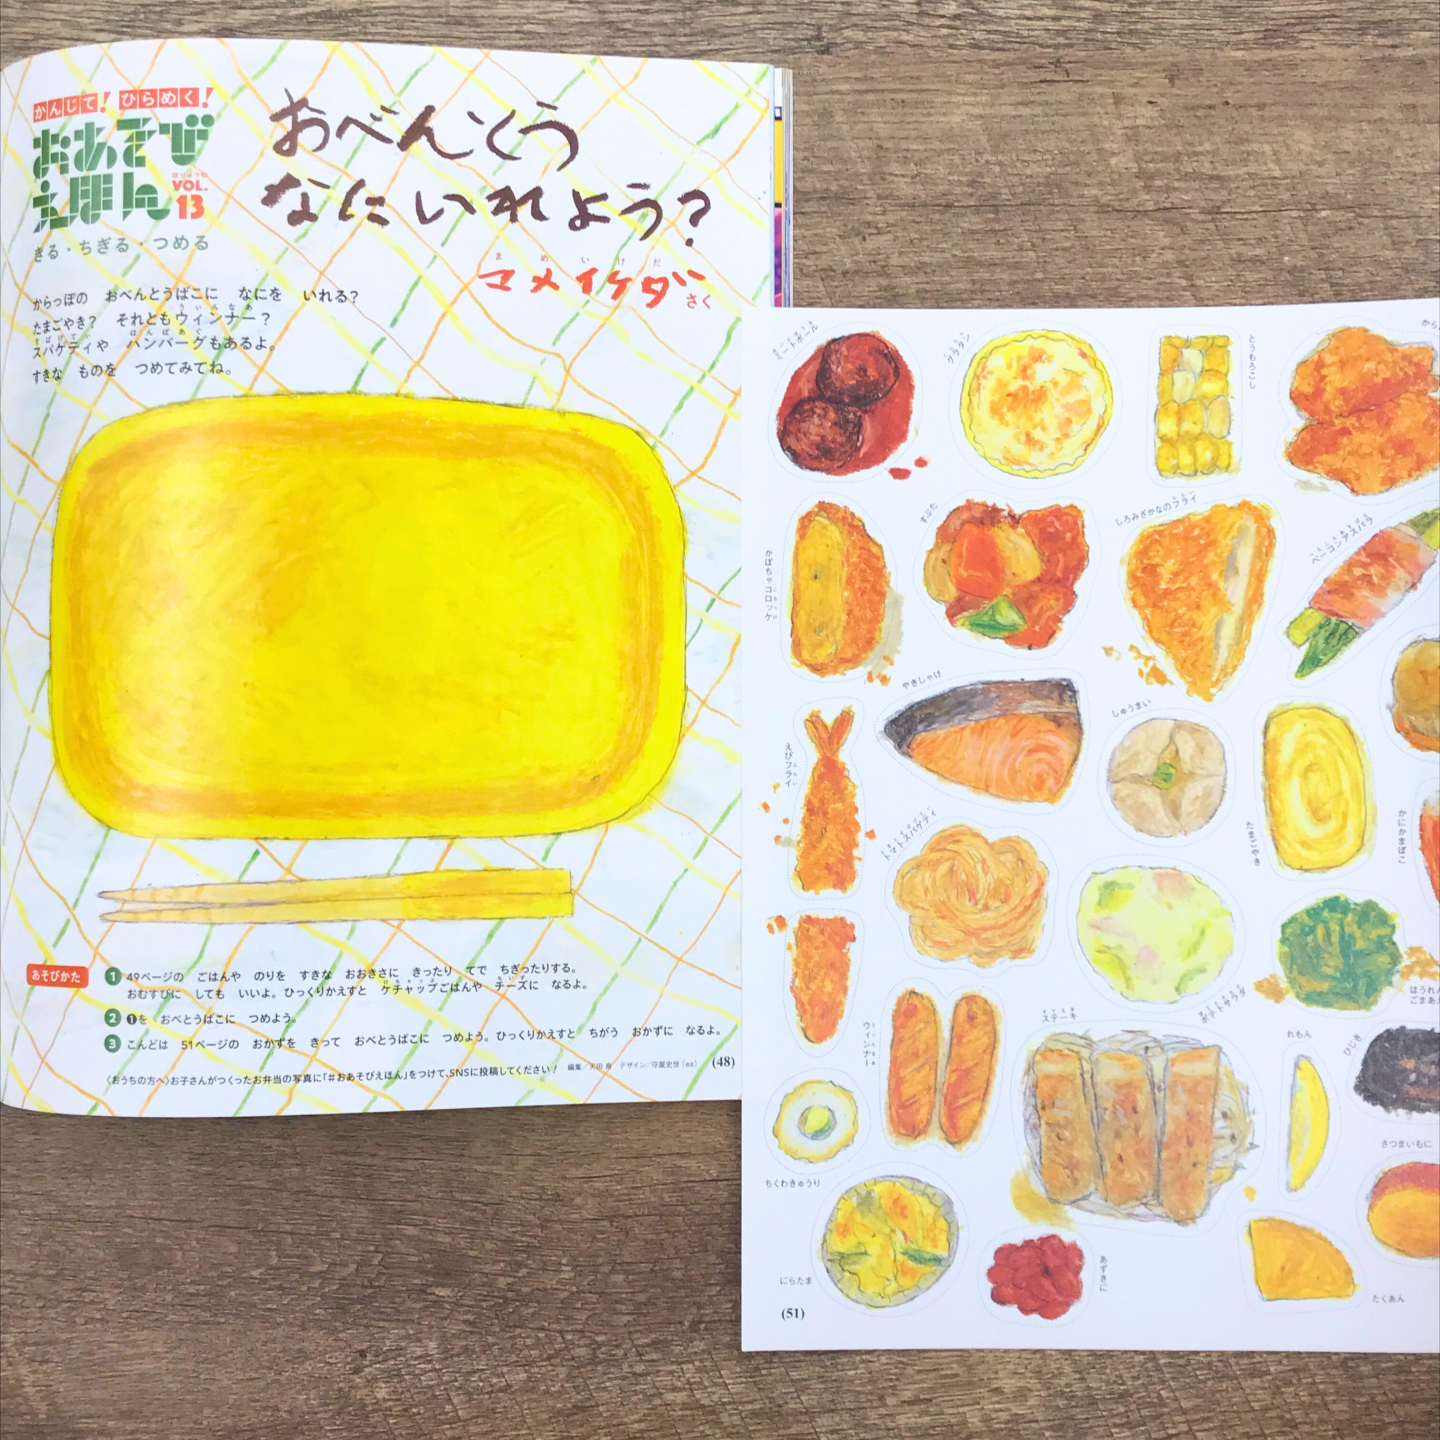 かんじて! ひらめく!
おあそび
えほん
ぼりゅうむ
VOL.
13
きる・ちぎる・つめる
おべんとう
なにいれよう?
まめいけだ
マメイケダ さく
からっぽの おべんとうばこに なにを いれる?
たまごやき? それともウィンナー?
スパゲティや ハンバーグもあるよ。
すきな ものを つめてみてね。
あそびかた
1 49ページの ごはんや のりを すきな おおきさに きったり てで ちぎったりする。
おむすびに しても いいよ。ひっくりかえすと ケチャップごはんや チーズに なるよ。
2 ❶を おべとうばこに つめよう。
3 こんどは 51ページの おかずを きって おべとうばこに つめよう。ひっくりかえすと ちがう おかずに なるよ。
〈おうちの方へ〉お子さんがつくったお弁当の写真に「#おあそびえほん」をつけて、SNSに投稿してください!
(48)
ミートボール
グラタン
とうもろこし
から
かぼちゃコロッケ
すぶた
しろみざかなのフライ
ベーコンアスパラ
えびフライ
やきしゃけ
しゅうまい
たまごやき
かにかまぼこ
トマトスパゲティ
ポテトサラダ
ほうれん
ごまあえ
ウィンナー
ステーキ
れもん
ひじき
ちくわきゅうり
さつまいもに
にらたま
あずきに
たくあん
(51)